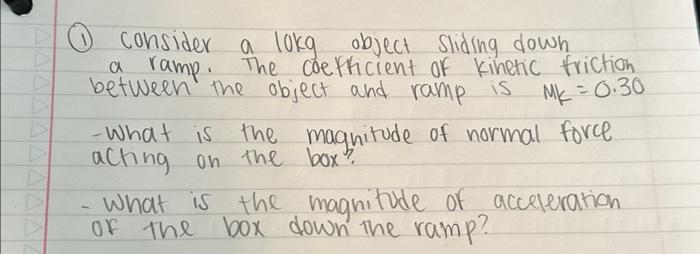 ① consider a 10kg object sliding down
a ramp. The coefficient of kinetic friction
between the object and ramp is Mk = 0.30
-what is the magnitude of normal force
acting on the box?
- what is the magnitude of acceleration
of the box down the ramp?